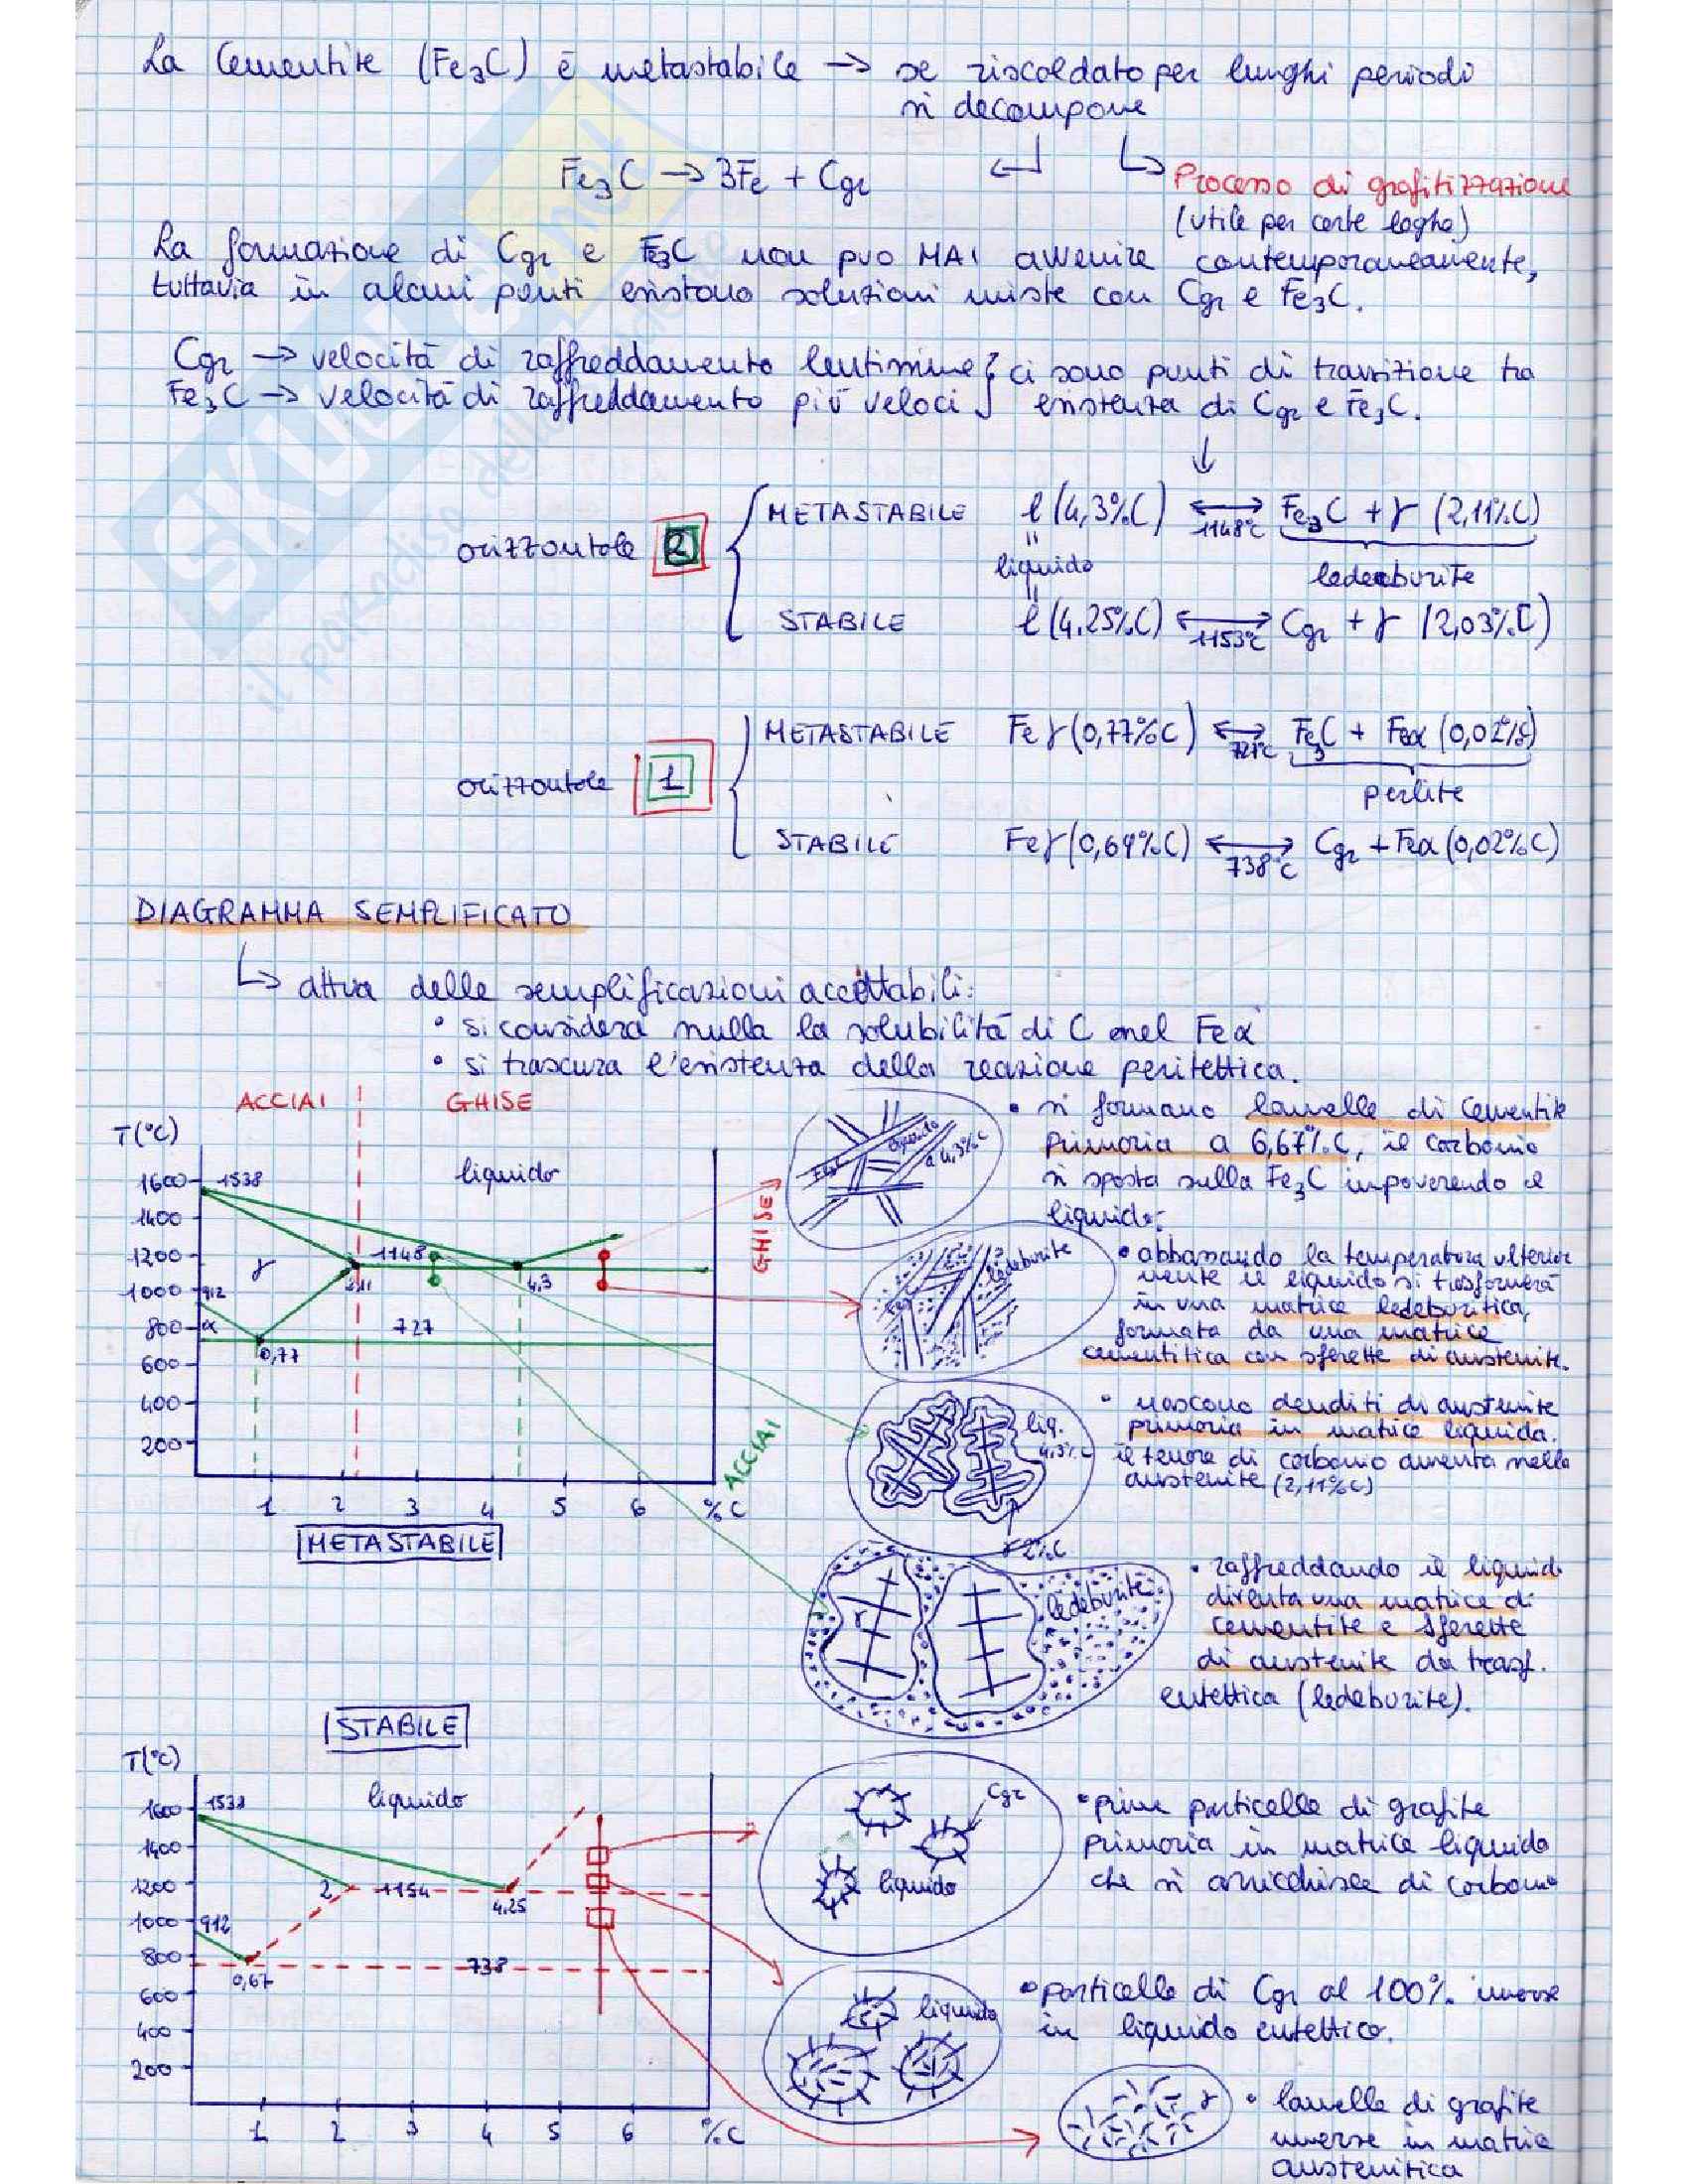 La Cementite (Fe₃C) è metastabile → se riscaldato per lunghi periodi
si decompone
Fe₃C → 3Fe + Cgr
↳ Processo di grafitizzazione
(utile per certe leghe)
La formazione di Cgr e Fe₃C non può MAI avvenire contemporaneamente,
tuttavia in alcuni punti esistono soluzioni miste con Cgr e Fe₃C.
Cgr → velocità di raffreddamento lentissime } ci sono punti di transizione tra
Fe₃C → velocità di raffreddamento più veloci } esistenza di Cgr e Fe₃C.
↓
METASTABILE l (4,3%C) ⟷ 1148°C Fe₃C + γ (2,11%C)
orizzontale 2
liquido ledeburite
STABILE l (4.25%C) ⟷ 1153°C Cgr + γ (2,03%C)
METASTABILE Feγ (0,77%C) ⟷ 727°C Fe₃C + Feα (0,02%C)
orizzontale 1
perlite
STABILE Feγ (0,69%C) ⟷ 738°C Cgr + Feα (0,02%C)
DIAGRAMMA SEMPLIFICATO
↳ attua delle semplificazioni accettabili:
• si considera nulla la solubilità di C nel Feα
• si trascura l'esistenza della reazione peritettica.
ACCIAI GHISE
T(°C)
1600 1538 liquido
1400
1200 1148
γ
1000 912 2.11 4.3
800 α 727
0,77
600
400
200
1 2 3 4 5 6 %C
METASTABILE
GHISE
ACCIAI
Fe₃C liquido a 4,3%C
• si formano lamelle di Cementite
primaria a 6,67%C, il carbonio
si sposta sulla Fe₃C impoverendo il
liquido.
ledeburite
• abbassando la temperatura ulterior
mente il liquido si trasformerà
in una matrice ledeburitica,
formata da una matrice
cementitica con sferette di austenite.
liq.
4,3%C
γ 2%C
• nascono dendriti di austenite
primaria in matrice liquida.
il tenore di carbonio aumenta nella
austenite (2,11%C)
γ ledeburite
• raffreddando il liquido
diventa una matrice di
cementite e sferette
di austenite da trasf.
eutettica (ledeburite).
STABILE
T(°C)
1600 1538 liquido
1400
1200 2 1154 4,25
1000 912
800 738
0,67
600
400
200
1 2 3 4 5 6 %C
Cgr
liquido
• prime particelle di grafite
primaria in matrice liquida
che si arricchisce di carbonio
liquido
• particelle di Cgr al 100% immerse
in liquido eutettico.
γ
• lamelle di grafite
immerse in matrice
austenitica
SKUOLA.net
il paradiso dello studente